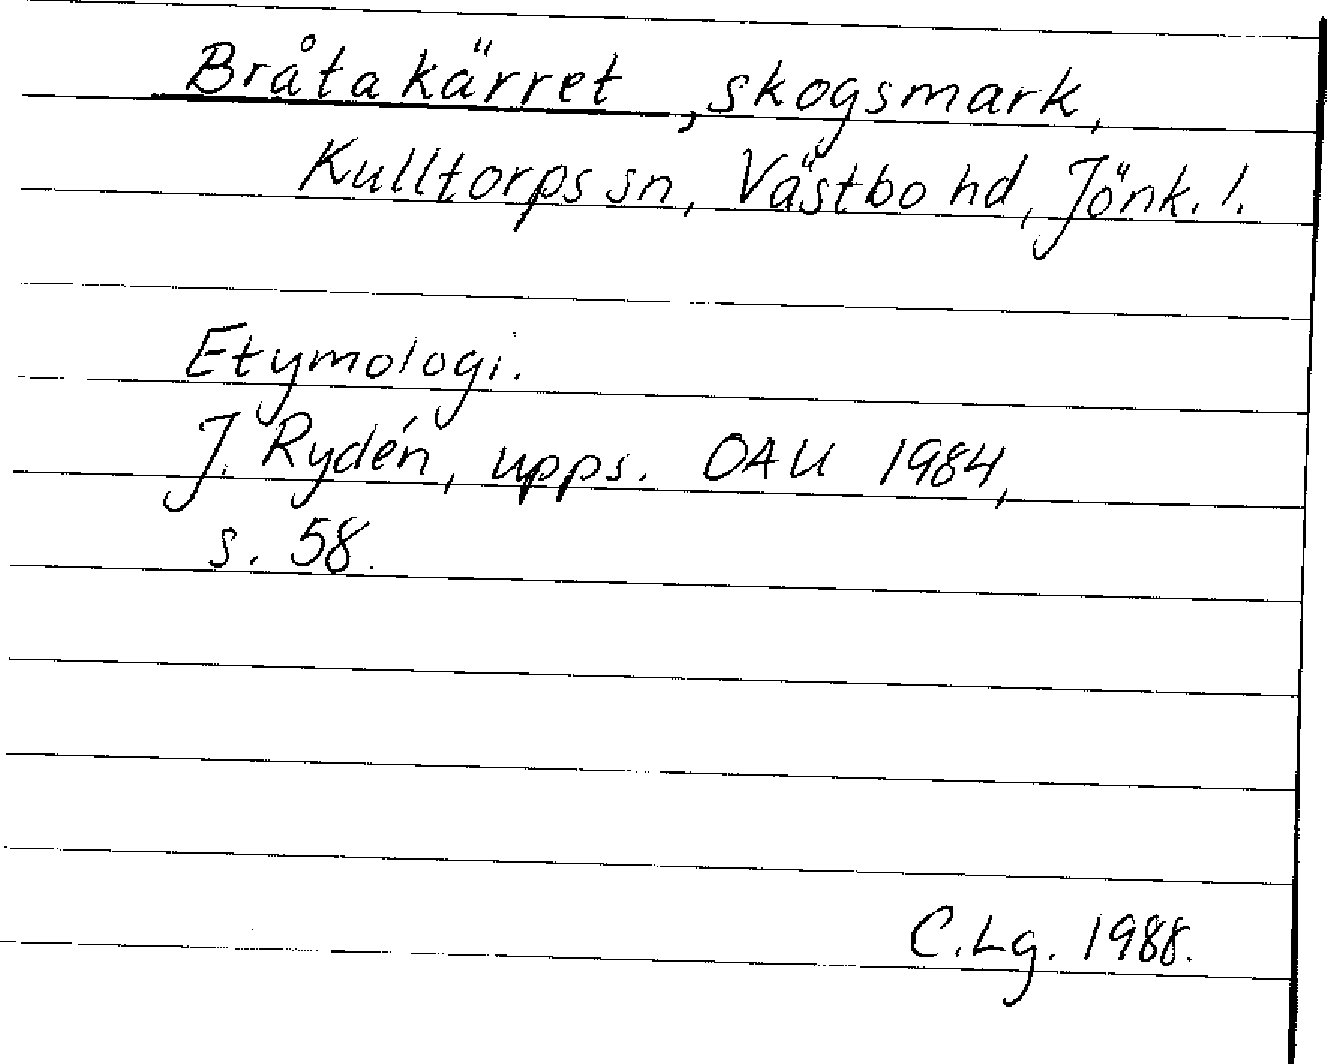 Bråtakärret, skogsmark,
Kulltorps sn, Västbo hd, Jönk. l.
Etymologi.
J. Rydén, upps. OAU 1984,
s. 58.
C.Lg. 1988.